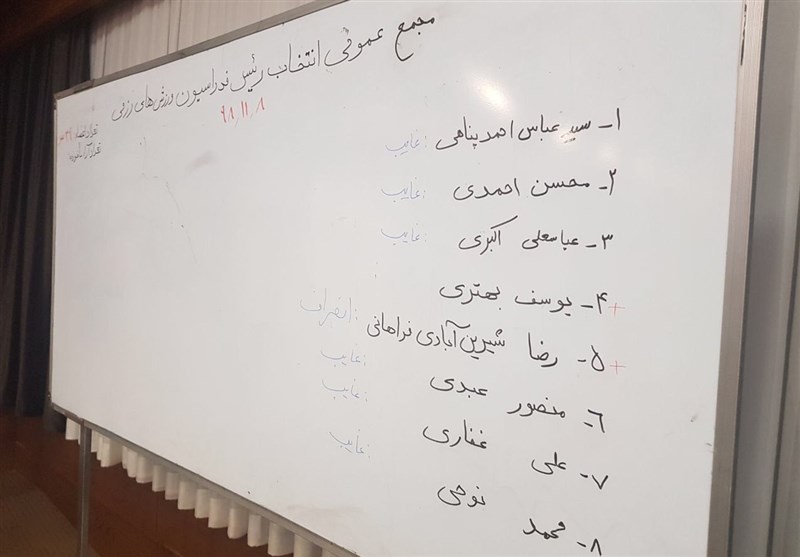 مجمع عمومی انتخاب رئیس فدراسیون ورزش‌های رزمی
۹۸/۱۱/۸
تعداد اعضاء
تعداد آراء
۱- سید عباس احمد پناهی : غایب
۲- محسن احمدی : غایب
۳- عباسعلی اکبری : غایب
+ ۴- یوسف بهتری
+ ۵- رضا شیرین‌آبادی فراهانی : انصراف
۶- منصور عبدی : غایب
۷- علی غفاری : غایب
۸- محمد نوحی : غایب